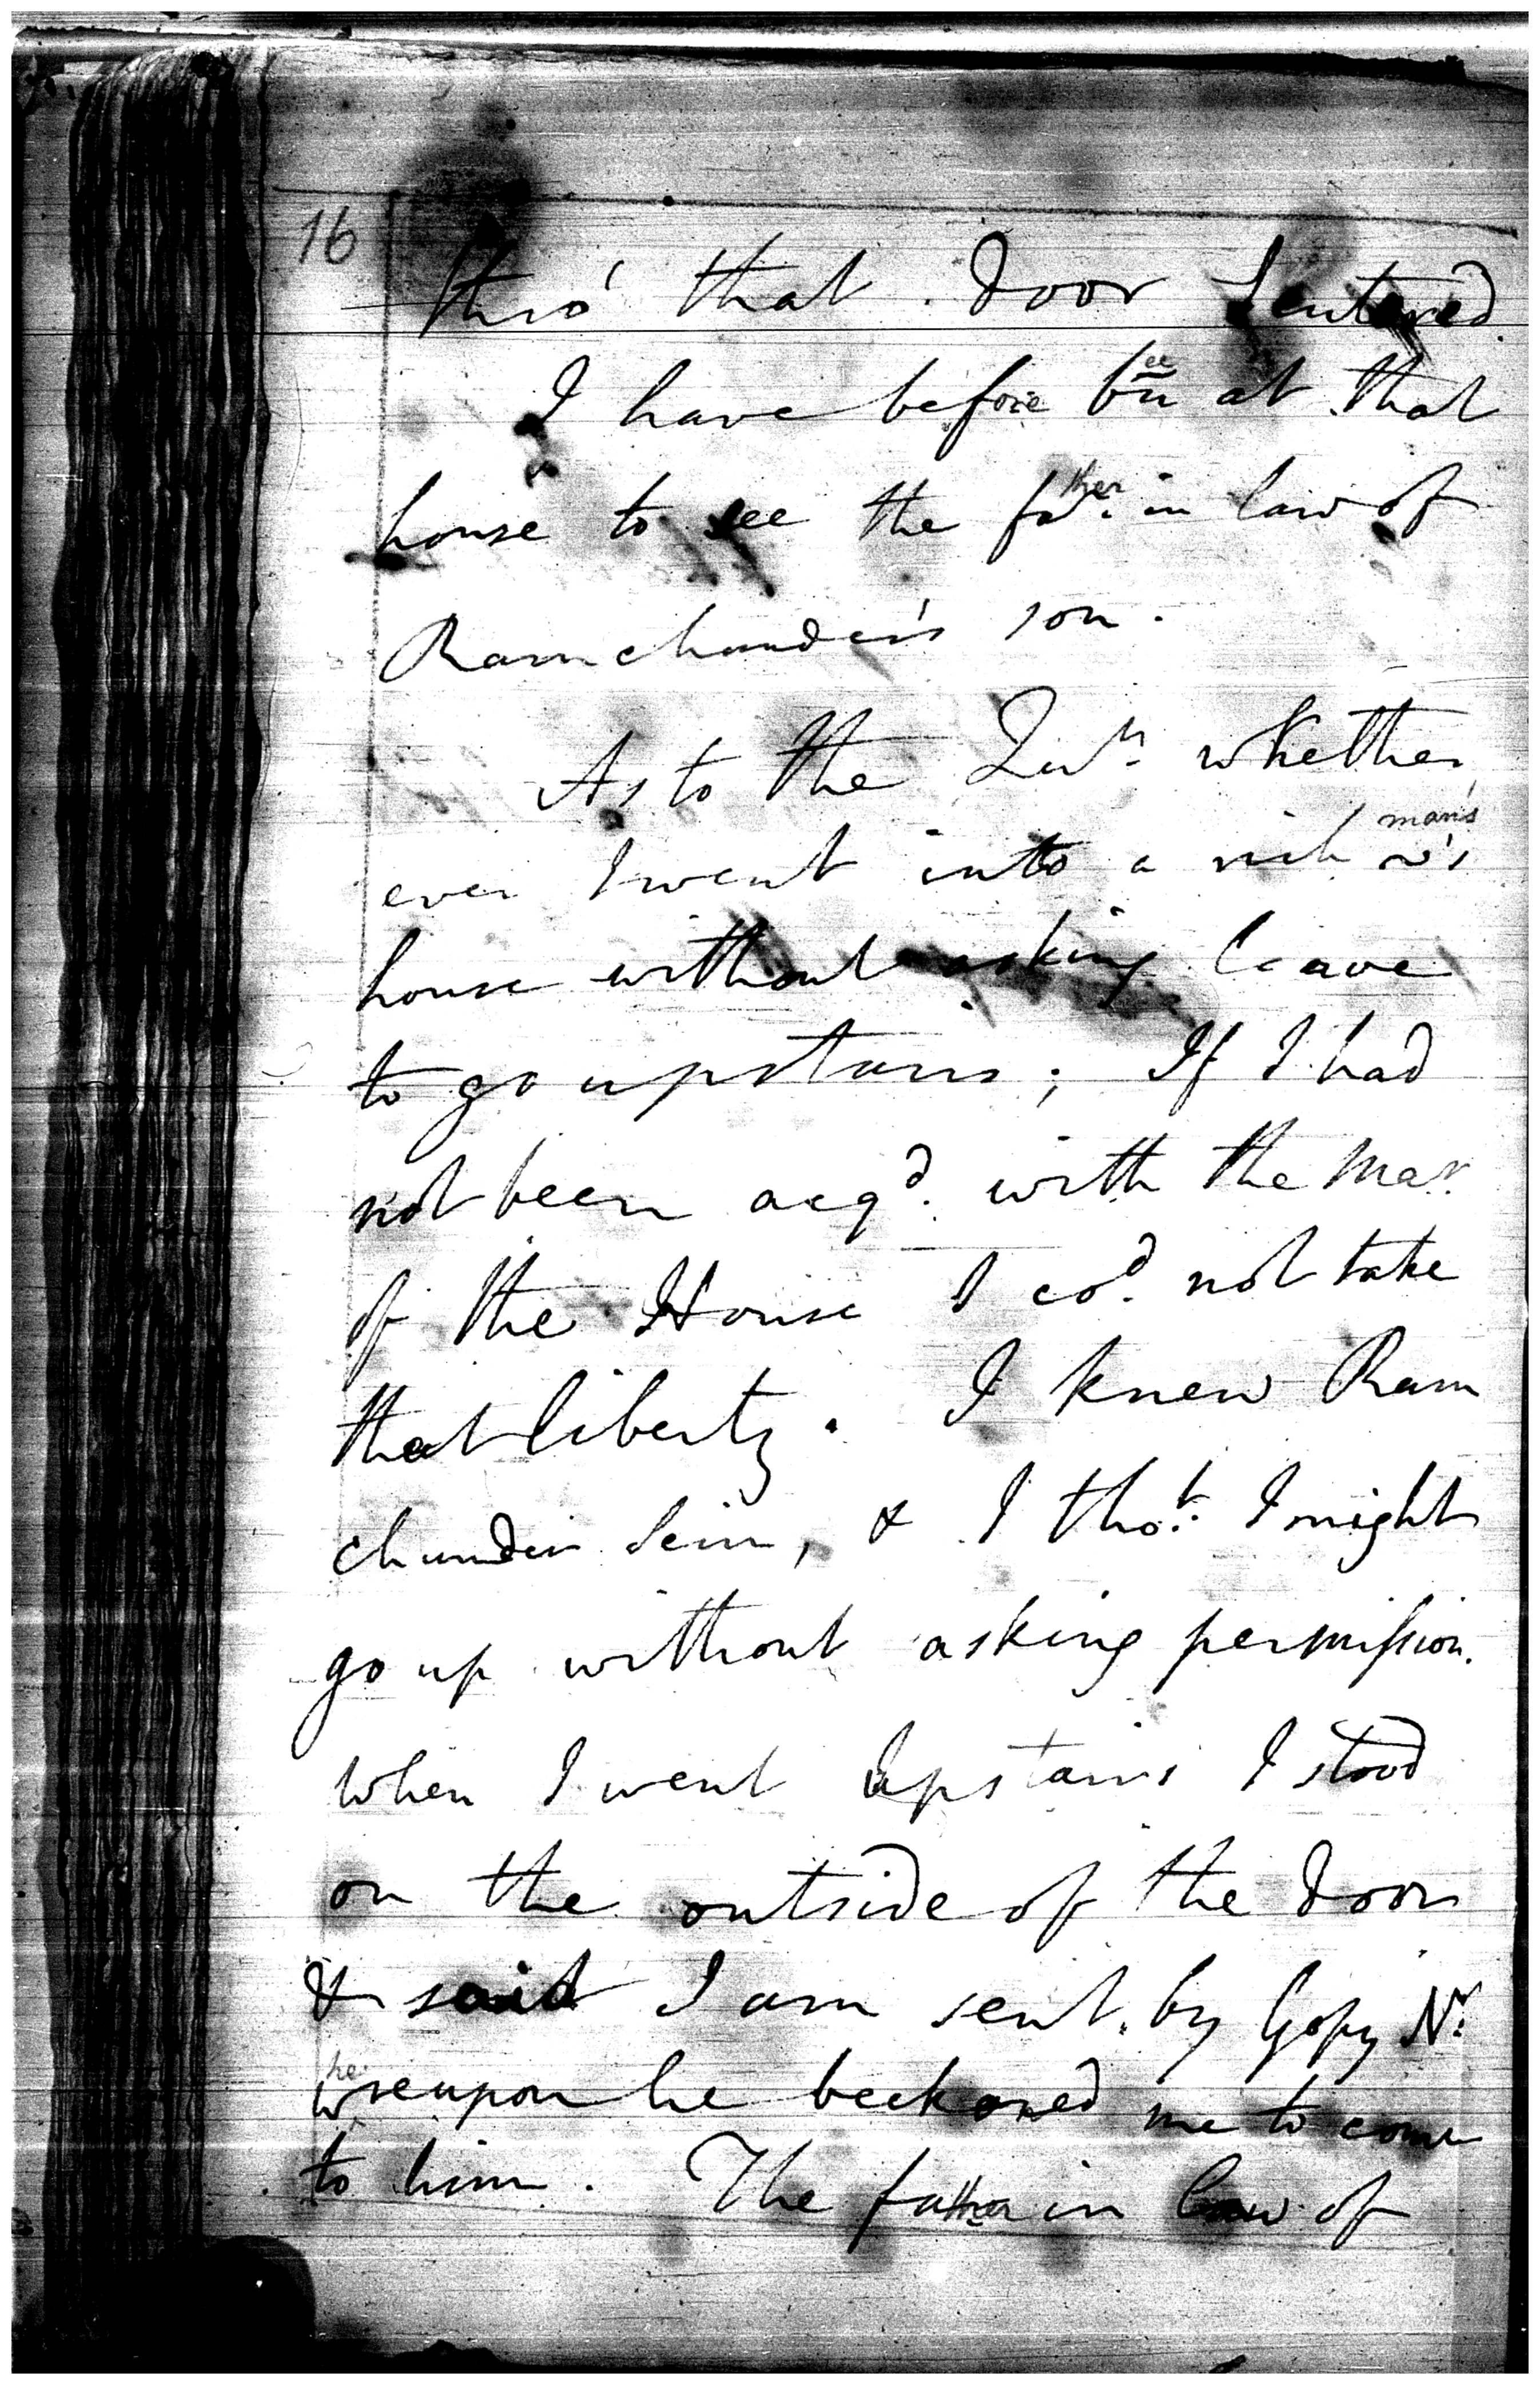 16
thro' that door I entered
I have before been at that
house to see the father in law of
Ramchunder's son.
As to the Qu:n whether
ever I went into a rich man's
house without asking leave
to go upstairs; If I had
not been acqd. with the Mar.
of the House I cod. not take
that liberty. I knew Ram
chunder Sein, & I thot. I might
go up without asking permission.
When I went Upstairs I stood
on the outside of the door
& said I am sent by Gopy Nr.
whereupon he beckoned me to come
to him. The father in law of